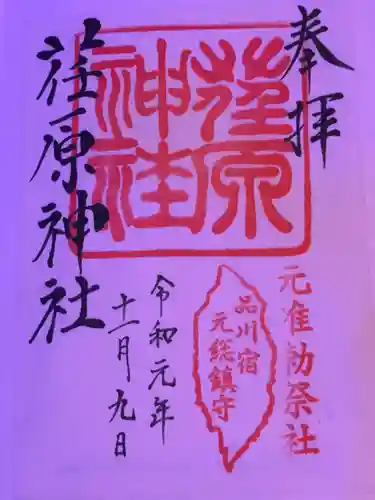 奉拝
元准勅祭社
荏原神社
品川宿
元総鎮守
令和元年
十一月九日
荏原神社